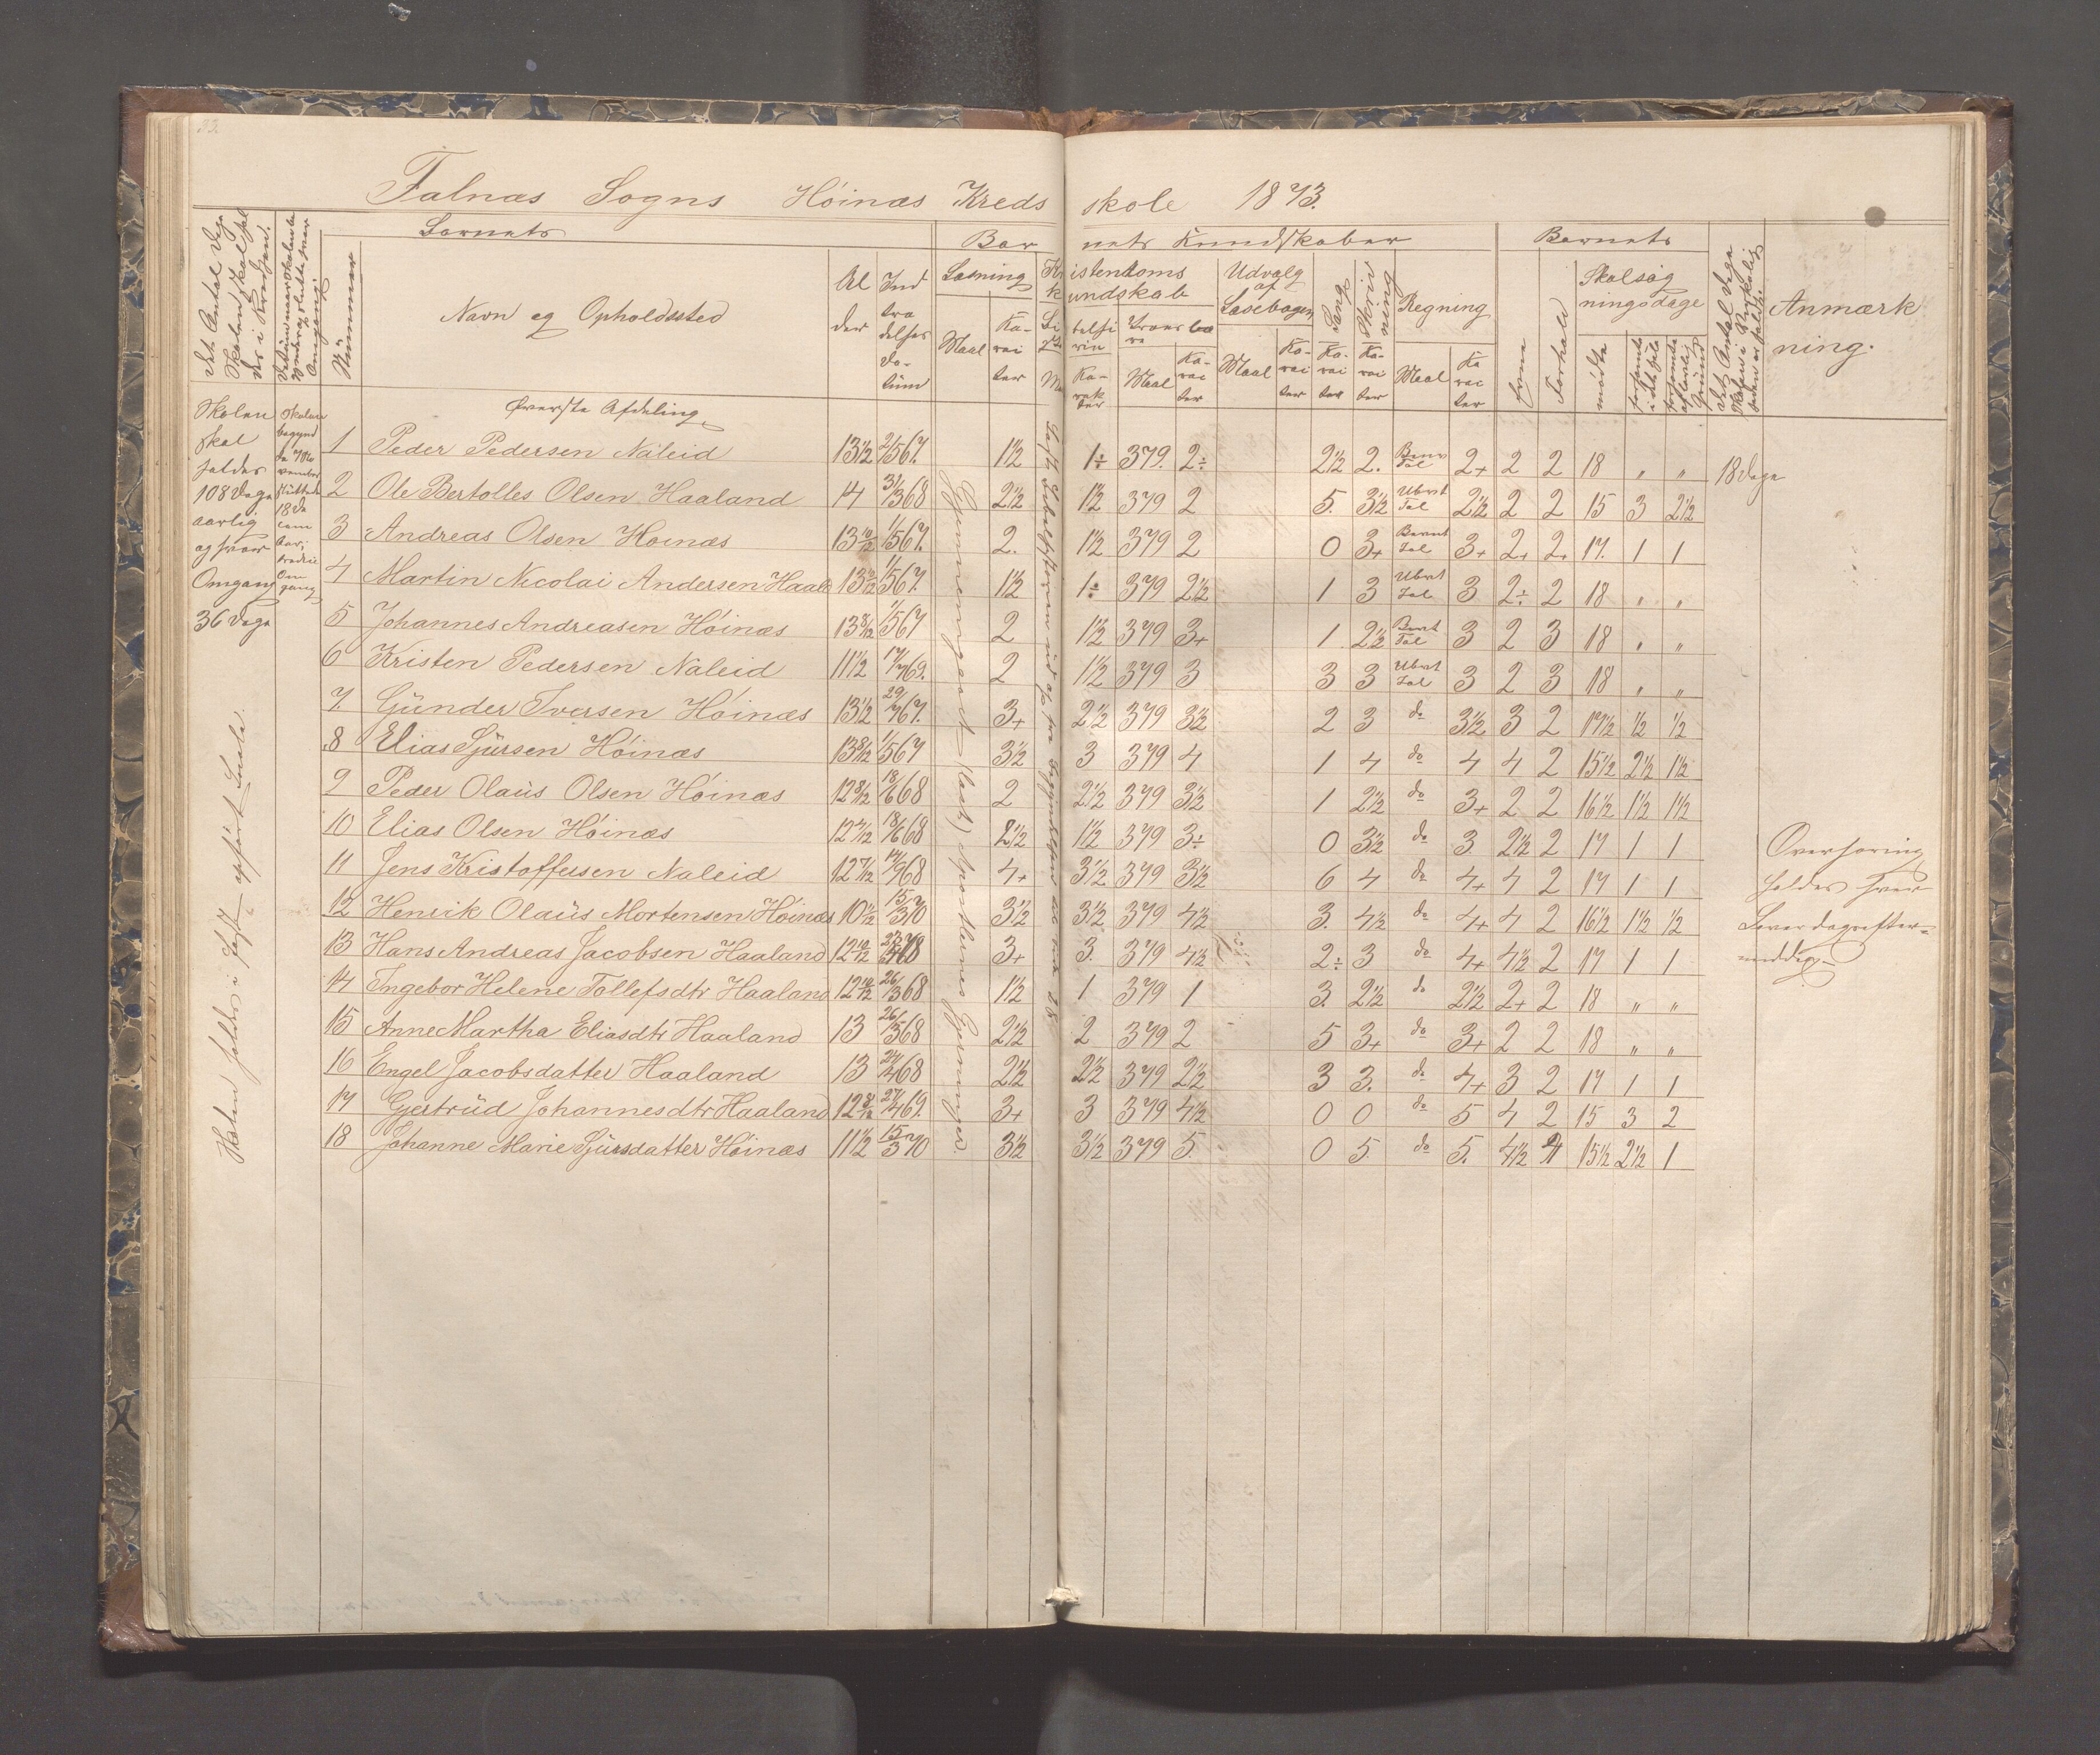 32
Falnæs Sogns Höinæs Kreds skole 1873.
Det Antal Dage Skolen skal holdes i Kredsen.
Nummer
Barnets
Navn og Opholdssted
Al der
Ind træ delses Da- tum
Bar nets Kundskaber
Læsning
Maal
Ka- rac ter
Kr istendoms k undskab
Maal
Ka- rac ter
Udvalg af Læsebogen
Maal
Ka- rac ter
Sang
Ka- rac ter
Skriv ning
Ka- rac ter
Regning
Maal
Ka rac ter
Barnets
Evne
Forhold
Skolesøg ningsdage
mødte
forsømte i det hele
forsømte af lovlig Grund
Det Antal Dage Skolen i Virkelig heden er holdt
Anmærk ning.
Skolen skal holdes 108 Dage aarlig og hver Omgang 36 Dage
Skolen holdes i fast opført Locale.
Øverste Afdeling
1 Peder Pedersen Naleid 13½ 2/5 67. 1½ 1÷ 379. 2÷ 2½ 2. Benv Tal 2+ 2 2 18 " " 18 Dage
2 Ole Bertolles Olsen Haaland 14 31/3 68 2½ 1½ 379 2 5. 3½ Ubvt Tal 2½ 2 2 15 3 2½
3 Andreas Olsen Hoinæs 13 10/12 1/5 67. 2. 1½ 379 2 0 3+ Bevnt Tal 3+ 2+ 2+ 17. 1 1
4 Martin Nicolai Andersen Haal 13 10/12 1/5 67. 1½ 1÷ 379 2½ 1 3 Ubvt Tal 3 2÷ 2 18 " "
5 Johannes Andreasen Höinæs 13 8/12 1/5 67 2 1½ 379 3+ 1 2½ Bevnt Tal 3 2 3 18 " "
6 Kristen Pedersen Naleid 11½ 14/7 69. 2 1½ 379 3 3 3 Ubvt Tal 3 2 3 18 " "
7. Gunder Iversen Höinæs 13½ 29/7 67. 3+ 2½ 379 3½ 2 3 do 3½ 3 2 17½ ½ ½
8 Elias Sjursen Höinæs 13 8/12 1/5 67 3½ 3 379 4 1 4 do 4 4 2 15½ 2½ 1½
9 Peder Olaus Olsen Höinæs 12 8/12 18/6 68 2 2½ 379 3½ 1 2½ do 3+ 2 2 16½ 1½ 1½
10 Elias Olsen Höinæs 12 7/12 18/6 68 2½ 1½ 379 3÷ 0 3½ do 3 2½ 2 17 1 1
11 Jens Kristoffersen Naleid 12 7/12 14/9 68 4+ 3½ 379 3½ 6 4 do 4+ 4 2 17 1 1
12 Henrik Olaus Mortensen Höinæs 10½ 15/3 70 3½ 3½ 379 4½ 3. 4½ do 4+ 4 2 16½ 1½ ½
13 Hans Andreas Jacobsen Haaland 12 10/12 27/4 68 3+ 3. 379 4½ 2÷ 3 do 4+ 4½ 2 17 1 1
14 Ingebor Helene Tollefsdtr Haaland 12 10/12 26/3 68 1½ 1 379 1 3. 2½ do 2½ 2+ 2 18 " "
15 Anne Martha Eliasdtr Haaland 13 26/3 68 2½ 2 379 2 5 3+ do 3+ 2 2 18 " "
16 Engel Jacobsdatter Haaland 13 24/4 68 2½ 2½ 379 2½ 3 3. do 4+ 3 2 17 1 1
17 Gjertrud Johannesdtr Haaland 12 8/12 27/4 69. 3+ 3 379 4½ 0 0 do 5 4 2 15 3 2
18 Johanne Marie Sjursdatter Höinæs 11½ 15/3 70 3½ 3½ 379 5. 0 5. do 5. 4½ 4 15½ 2½ 1
Gjennemgaaet (læst) Apostlenes Gjerninger.
Overhøring
holdes hver
Løverdagsefter-
middag.